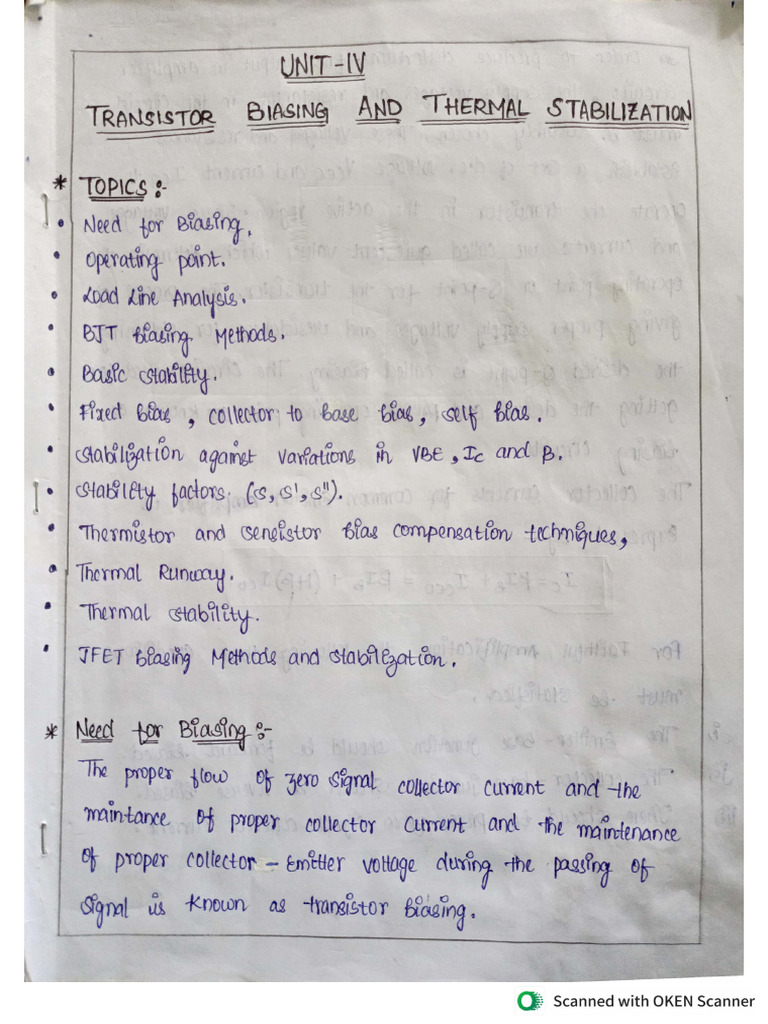 UNIT-IV
TRANSISTOR BIASING AND THERMAL STABILIZATION
* TOPICS :-
• Need for Biasing.
• Operating point.
• Load Line Analysis.
• BJT Biasing Methods.
• Basic Stability.
• Fixed bias, collector to base bias, self bias.
• Stabilization against variations in VBE, Ic and β.
• Stability factors. (S, S', S'').
• Thermistor and Sensistor bias compensation techniques,
• Thermal Runway.
• Thermal stability.
• JFET Biasing Methods and stabilization.
* Need for Biasing :-
The proper flow of zero signal collector current and the
maintance of proper collector current and the maintenance
of proper collector - Emitter voltage during the passing of
signal is known as transistor biasing.
Scanned with OKEN Scanner